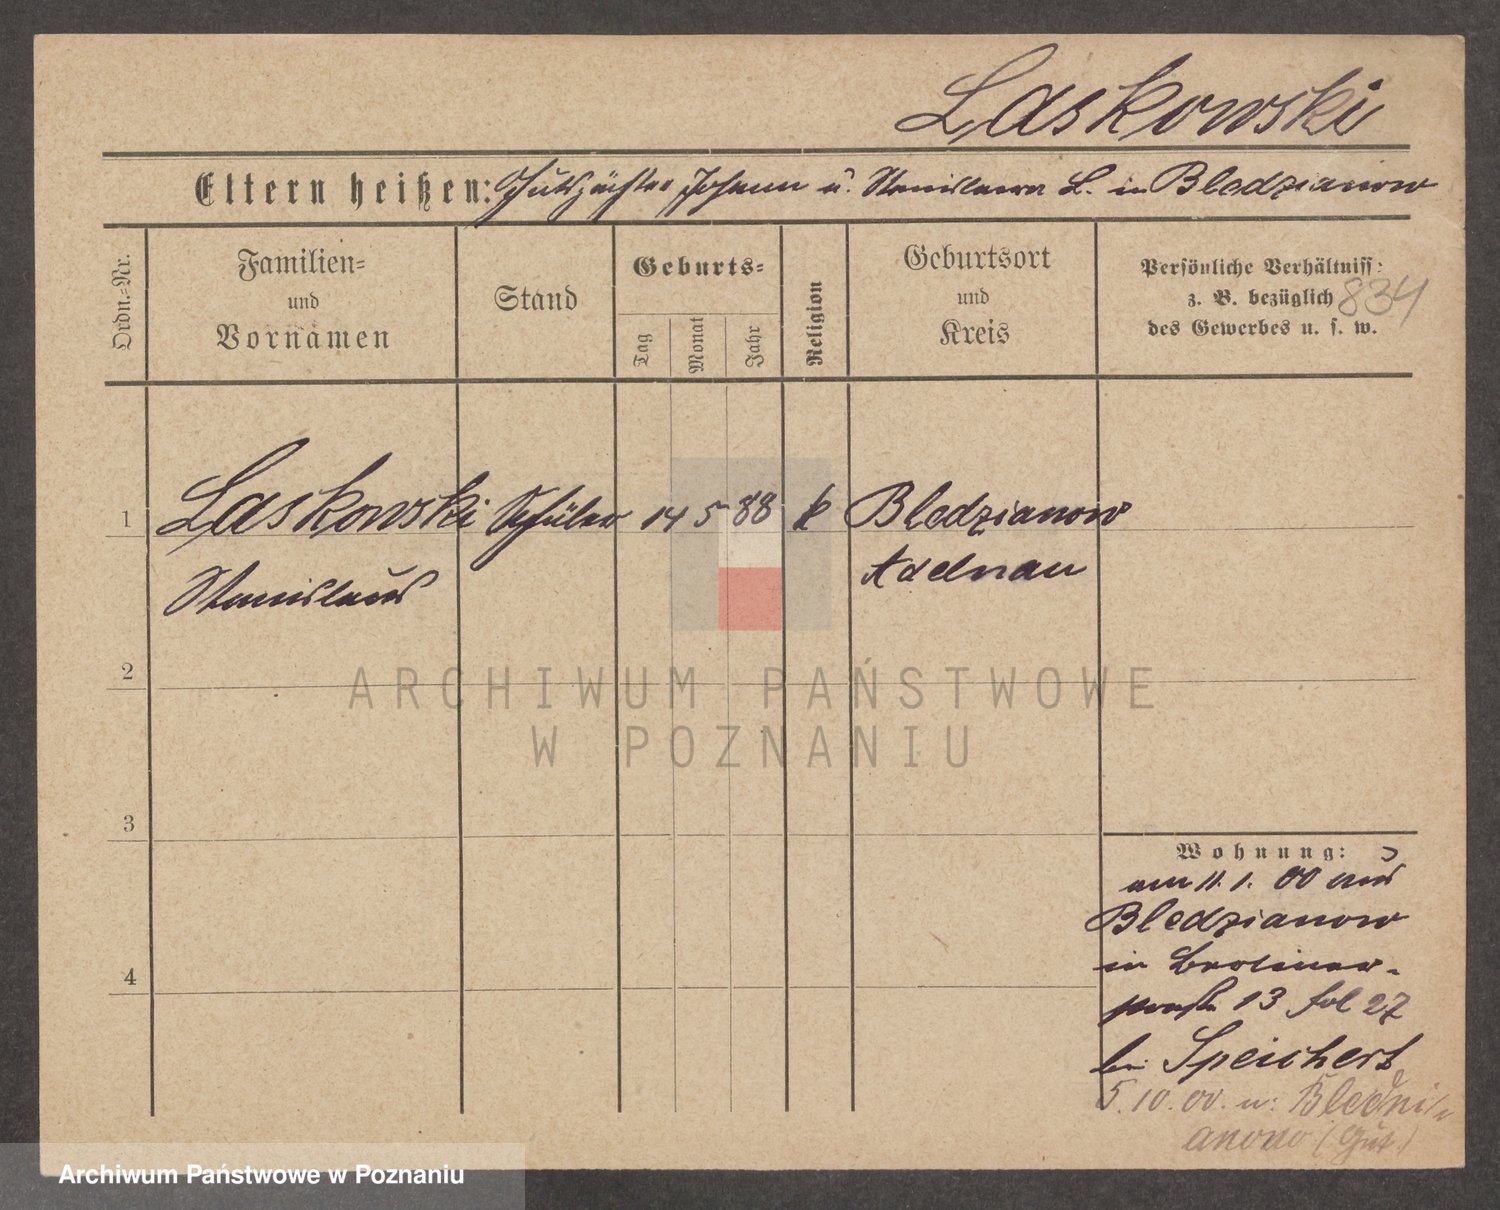 Laskowski
Eltern heißen: Gutspächter Johann u. Stanislawa L. in Bledzianow
Ordn.-Nr.
Familien-
und
Vornamen
Stand
Geburts-
Tag
Monat
Jahr
Religion
Geburtsort
und
Kreis
Persönliche Verhältniss:
z. B. bezüglich
des Gewerbes u. s. w.
834
1 Laskowski Schüler 14 5 88 k Bledzianow
Stanislaus Adelnau
2
ARCHIWUM PAŃSTWOWE
W POZNANIU
3
Wohnung:
am 11. 1. 00 aus
Bledzianow
4
in Berliner-
straße 13 fol 27
bei Speichert
5. 10. 00. n:
anowo (Gut)
Archiwum Państwowe w Poznaniu